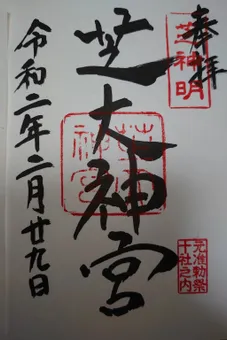 奉拝
芝神明
元准勅祭
十社之内
芝大神宮
芝大
神宮
令和二年二月廿九日